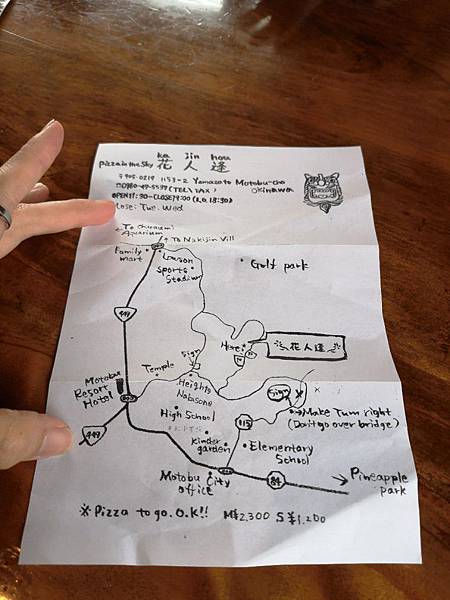 ka jin hou
pizza in the sky 花人逢
〒905-0219 1153-2 Yamazato Motobu-cho
OKINAWA
☎0980-47-5537 (TEL/FAX)
OPEN11:30-CLOSE19:00 (L.O.18:30)
Close: Tue. Wed
← To Churaumi Aquarium
→ To Nakijin Vill
Family mart
Lawson
Sports Stadium
Golf park
449
Here!
花人逢
Sign
Temple
Motobu Resort Hotel
Heights Nakasone
High School
115
→Make Turn right
(Don't go over bridge)
Kinder garden
Elementary School
449
Motobu City office
84
→ Pineapple park
※Pizza to go.O.K!! M¥2,300 S¥1,200